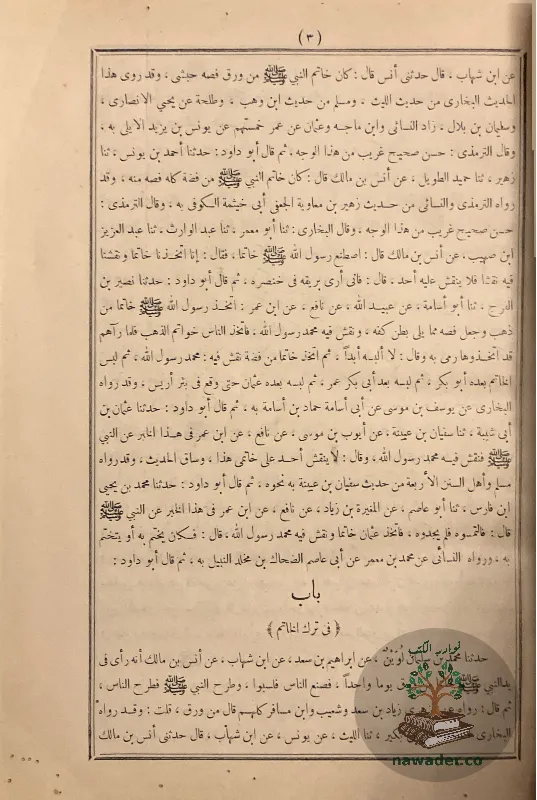 (٣)
عن ابن شهاب ، قال حدثنى أنس قال : كان خاتم النبي ﷺ من ورق فصه حبشى ، وقد روى هذا
الحديث البخارى من حديث الليث ، ومسلم من حديث ابن وهب ، وطلحة عن يحيي الانصارى ،
وسفيان بن بلال ، زاد النسائى وابن ماجه وعثمان عن عمر خمستهم عن يونس بن يزيد الايلى به ،
وقال الترمذى : حسن صحيح غريب من هذا الوجه ، ثم قال أبو داود : حدثنا أحمد بن يونس ، ثنا
زهير ، ثنا حميد الطويل ، عن أنس بن مالك قال : كان خاتم النبي ﷺ من فضة كله فصه منه ، وقد
رواه الترمذى والنسائى من حديث زهير بن معاوية الجعفى أبى خيثمة الكوفى به ، وقال الترمذى :
حسن صحيح غريب من هذا الوجه . وقال البخارى : ثنا أبو معمر ، ثنا عبد الوارث ، ثنا عبد العزيز
ابن صهيب ، عن أنس بن مالك قال : اصطنع رسول الله ﷺ خاتما ، فقال : إنا اتخذنا خاتما ونقشنا
فيه نقشا فلا ينقش عليه أحد ، قال : فانى أرى بريقه فى خنصره ، ثم قال أبو داود : حدثنا نصير بن
الفرج ، ثنا أبو أسامة ، عن عبيد الله ، عن نافع ، عن ابن عمر : اتخذ رسول الله ﷺ خاتما من
ذهب وجعل فصه مما يلى بطن كفه ، ونقش فيه محمد رسول الله ، فاتخذ الناس خواتم الذهب فلما رآهم
قد اتخذوها رمى به وقال : لا ألبسه أبداً ، ثم اتخذ خاتما من فضة نقش فيه : محمد رسول الله ، ثم لبس
الخاتم بعده أبو بكر ، ثم لبسه بعد أبى بكر عمر ، ثم لبسه بعده عثمان حتى وقع فى بئر أريس ، وقد رواه
البخارى عن يوسف بن موسى عن أبى أسامة حماد بن أسامة به ، ثم قال أبو داود : حدثنا عثمان بن
أبى شيبة ، ثنا سفيان بن عيينة ، عن أيوب بن موسى ، عن نافع ، عن ابن عمر فى هذا الخبر عن النبي
ﷺ فنقش فيه محمد رسول الله ، وقال : لا ينقش أحد على خاتمى هذا ، وساق الحديث ، وقد رواه
مسلم وأهل السنن الأربعة من حديث سفيان بن عيينة به نحوه ، ثم قال أبو داود : حدثنا محمد بن يحيى
ابن فارس ، ثنا أبو عاصم ، عن المغيرة بن زياد ، عن نافع ، عن ابن عمر فى هذا الخبر عن النبي ﷺ
قال : فالتمسوه فلم يجدوه ، فاتخذ عثمان خاتما ونقش فيه محمد رسول الله ، قال : فكان يختم به أو يتختم
به ، ورواه النسائى عن محمد بن معمر عن أبى عاصم الضحاك بن مخلد النبيل به ، ثم قال أبو داود :
باب
﴿ فى ترك الخاتم ﴾
حدثنا محمد بن سليمان لُوَيْنٌ ، عن ابراهيم بن سعد ، عن ابن شهاب ، عن أنس بن مالك أنه رأى فى
يد النبي يوما واحداً ، فصنع الناس فلبسوا ، وطرح النبي ﷺ فطرح الناس ،
ثم قال : رواه عن زياد بن سعد وشعيب وابن مسافر كلهم قال من ورق ، قلت : وقد رواه
البخارى بكير ، ثنا الليث ، عن يونس ، عن ابن شهاب ، قال حدثنى أنس بن مالك
نوادر الكتب
nawadet.co